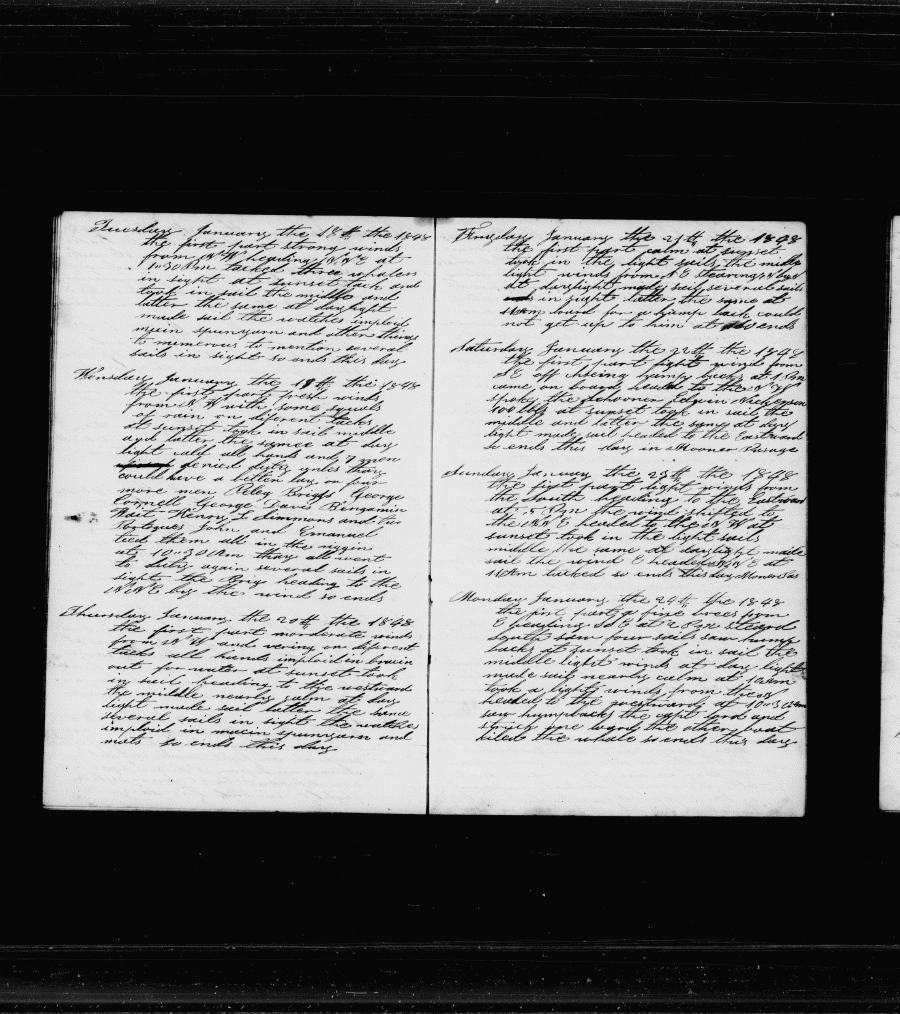 Tuesday January the 18th the 1848
the first part strong winds
from NW heading NNE at
10:30 Am tacked three whalers
in sight at sunset tack and
took in sail the middle and
latter the same at daylight
made sail the watches imploid
mecin spunyarn and other things
to numerous to mention several
sails in sight so ends this day
Wensday January the 19th the 1848
the first part fresh winds
from NW with some squels
of rain on different tacks
at sunset took in sail middle
and latter the same at day
light call all hands and 7 men
denied duty unles thay
could have a better lay or four
more men Peley Briggs George
Cornell George Davis Bengamin
Wait Henry T Simmons and two
Portegues John and Emanuel
tied them all in the riggin
at 10:30 Am thay all went
to duty again several sails in
sight the Brig heading to the
NNE by the wind so ends
Thursday January the 20th the 1848
the first part morderate winds
from NW and vering on different
tacks all hands imploid in brakin
out for water at sunset took
in sail heading to the westward
the middle nearly calm at day
light made sail latter the same
several sails in sight the watches
imploid in mecin spunyarn and
mats so ends this day
Friday January the 21th the 1848
the first part calm at sunset
took in the light sails the middle
light winds from NE stearing
at daylight made sail several sails
in sight latter the same at
11 Am bord for a hump back could
not get up to him at so ends
Saturday January the 22th the 1848
the first part light wind from
SE off cheing hump backs at
came on board headed to the
spoke the Schooner Edwin Nickerson
100 bbls at sunset took in sail the
middle and latter the same at day
light made sail headed to the Eastward
so ends this day in Mooner Passage
Sunday January the 23th the 1848
the first part light winds from
the South heading to the Eastward
at 5 Pm the wind shifted to
the NNE headed to the NW at
sunset took in the light sails
middle the same at daylight made
sail the wind E headed NNE at
11 Am tacked so ends this day Mona Pas
Monday January the 24th the 1848
the first part a fine brees from
E heading SSE at 2 Pm steard
South saw four sails saw hump
backs at sunset took in sail the
middle light winds at day light
made sail nearly calm at
took a light winds from the
headed to the westward at 10:30 Am
saw humpbacks the capt lord and
strick one the other boat
kiled the whale so ends this day